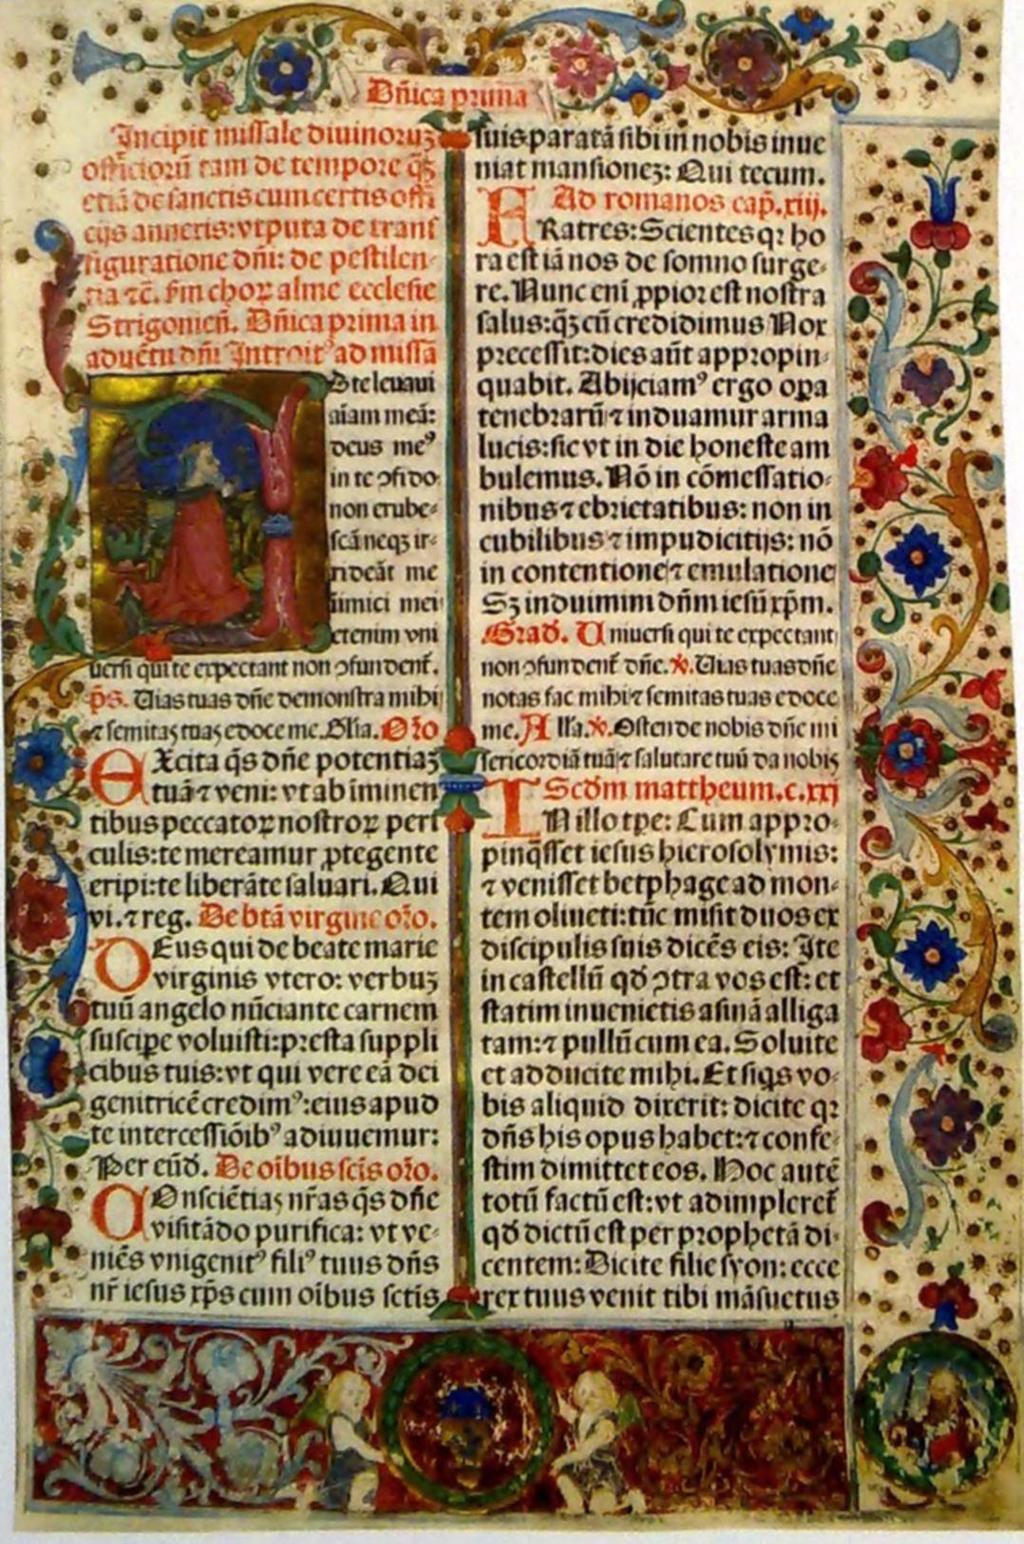 Dñica prima
Incipit missale diuinoruʒ
officiorū tam de tempore q̄ʒ
etiā de sanctis cum certis offi
cijs annexis: vtputa de trans
figuratione dñi: de pestilen-
tia ⁊ c̄. ſm choꝝ alme ecclesie
Strigonieñ. Dñica prima in
aduētu dñi Introitꝰ ad missā
Ad te leuaui
aīam meā:
deus meꝰ
in te ꝯfido:
non erube-
scā neqʒ ir-
rideāt me
inimici mei
etenim vni
uersi qui te expectant non ꝯfundent̄.
p̄s. Uias tuas dñe demonstra mihi
⁊ semitas tuas edoce me. Glīa. Oro
EXcita q̄s dñe potentiaʒ
tuā ⁊ veni: vt ab iminen
tibus peccatoꝝ nostroꝝ peri
culis: te mereamur ꝓtegente
eripi: te liberāte saluari. Qui
vi. ⁊ reg. De btā virgine oro.
DEus qui de beate marie
virginis vtero: verbuʒ
tuū angelo nūciante carnem
suscipe voluisti: presta suppli
cibus tuis: vt qui vere eā dei
genitricē credimꝰ: eius apud
te intercessiōibꝰ adiuuemur:
Per eūd. De oībus scīs oro.
COnsciētias nr̄as q̄s dñe
visitādo purifica: vt ve-
niēs vnigenitꝰ filiꝰ tuus dñs
nr̄ iesus xp̄s cum oībus sctis
suis paratā sibi in nobis inue
niat mansioneʒ: Qui tecum.
Ad romanos cap̄. xiij.
FRatres: Scientes qꝛ ho
ra est iā nos de somno surge-
re. Nunc eni ꝓpior est nostra
salus: q̄ʒ cū credidimus Nox
precessit: dies aūt appropin-
quabit. Abijciamꝰ ergo oꝑa
tenebrarū ⁊ induamur arma
lucis: sic vt in die honeste am
bulemus. Nō in cōmessatio-
nibus ⁊ ebrietatibus: non in
cubilibus ⁊ impudicitijs: nō
in contentione ⁊ emulatione
Sʒ induimini dñm iesū xp̄m.
Grad. Uniuersi qui te expectant
non ꝯfundent̄ dñe. ℣. Uias tuas dñe
notas fac mihi ⁊ semitas tuas edoce
me. Alla. ℣. Ostende nobis dñe mi
sericordiā tuā ⁊ salutare tuū da nobis
Scdm mattheum. c. xxj
IN illo tp̄e: Cum appro-
pinq̄sset iesus hierosolymis:
⁊ venisset betphage ad mon-
tem oliueti: tūc misit duos ex
discipulis suis dicēs eis: Ite
in castellū qd̄ ꝯtra vos est: et
statim inuenietis asinā alliga
tam: ⁊ pullū cum ea. Soluite
et adducite mihi. Et siq̄s vo-
bis aliquid dixerit: dicite qꝛ
dñs his opus habet: ⁊ confe-
stim dimittet eos. Hoc autē
totū factū est: vt adimpleret̄
qd̄ dictū est per prophetā di-
centem: Dicite filie syon: ecce
rex tuus venit tibi māsuetus